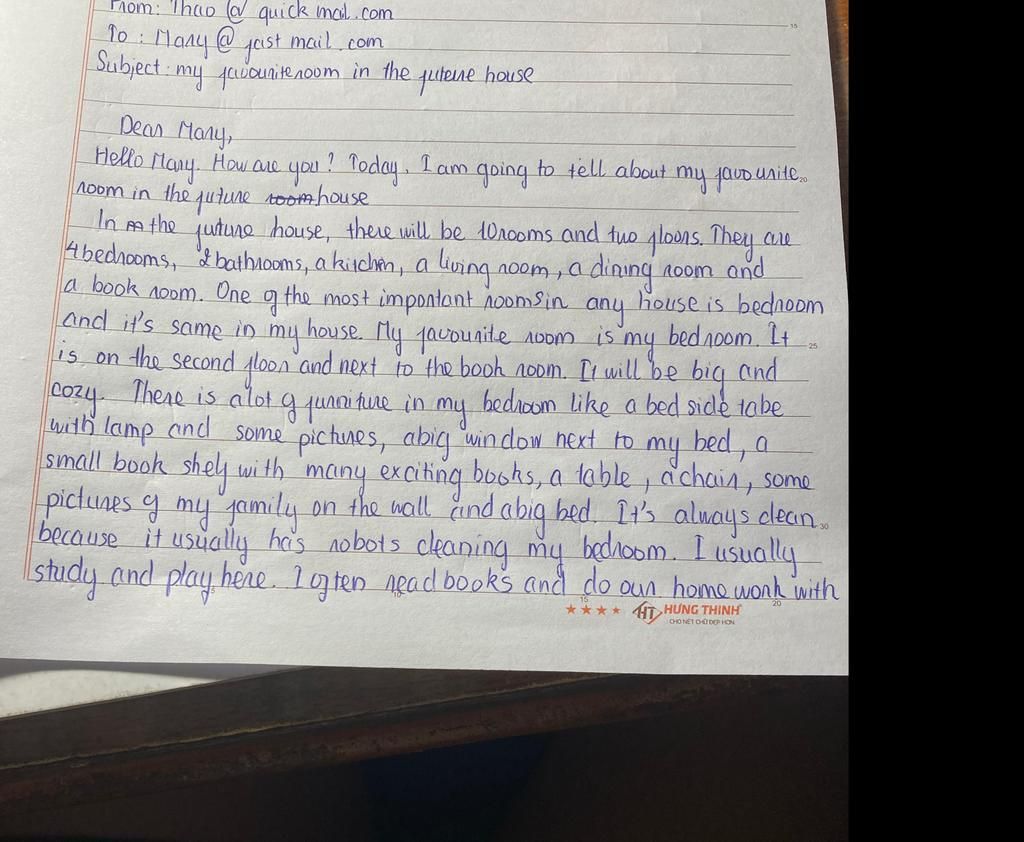 From: Thao @ quick mail.com
To : Mary @ fast mail.com
Subject: my favouriteroom in the future house
Dear Mary,
Hello Mary. How are you? Today, I am going to tell about my favourite
room in the future room house
In the future house, there will be 10rooms and two floors. They are
4 bedrooms, 2 bathrooms, a kitchen, a living room, a dining room and
a book room. One of the most important roomsin any house is bedroom
and it's same in my house. My favourite room is my bedroom. It
is on the second floor and next to the book room. It will be big and
cozy. There is alot of furniture in my bedroom like a bed side tabe
with lamp and some pictures, abig window next to my bed, a
small book shelf with many exciting books, a table, achair, some
pictures of my family on the wall and abig bed. It's always clean
because it usually has robots cleaning my bedroom. I usually
study and play here. I often read books and do our home work with
HƯNG THỊNH
CHO NÉT CHỮ ĐẸP HƠN
15
20
25
30
5
10
15
20